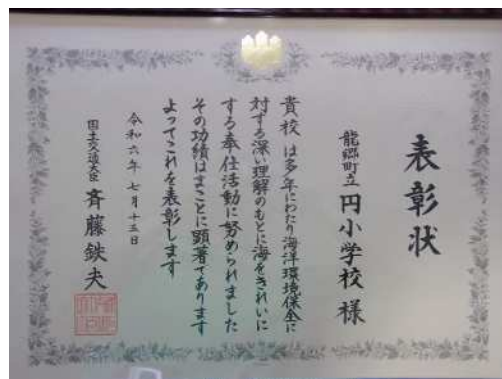 表彰状
龍郷町立 円小学校 様
貴校は多年にわたり海洋環境保全に
対する深い理解のもとに海をきれいに
する奉仕活動に努められました
その功績はまことに顕著であります
よってこれを表彰します
令和六年七月十五日
国土交通大臣 斉藤鉄夫